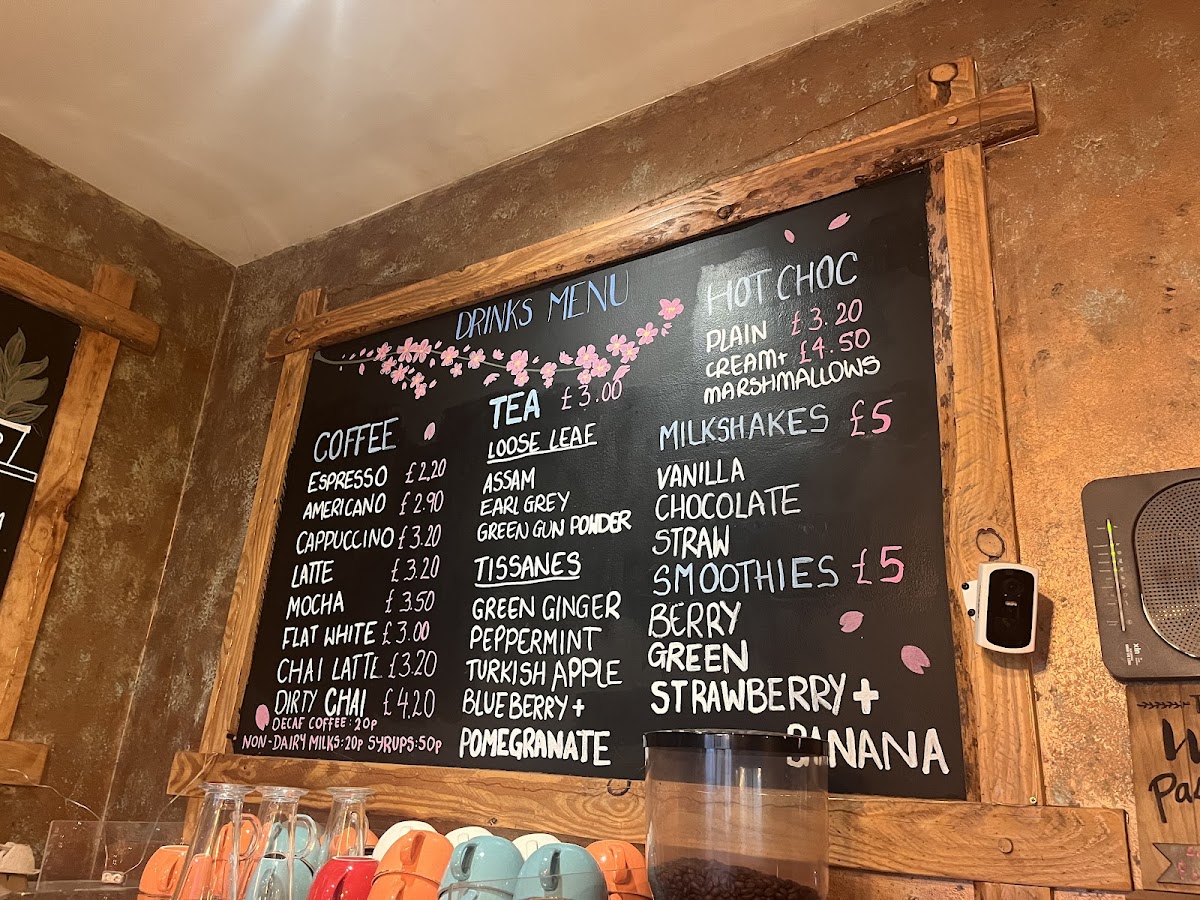 DRINKS MENU
COFFEE
ESPRESSO £2.20
AMERICANO £2.90
CAPPUCCINO £3.20
LATTE £3.20
MOCHA £3.50
FLAT WHITE £3.00
CHAI LATTE £3.20
DIRTY CHAI £4.20
DECAF COFFEE: 20p
NON-DAIRY MILKS: 20p SYRUPS: 50p
TEA £3.00
LOOSE LEAF
ASSAM
EARL GREY
GREEN GUN POWDER
TISSANES
GREEN GINGER
PEPPERMINT
TURKISH APPLE
BLUEBERRY +
POMEGRANATE
HOT CHOC
PLAIN £3.20
CREAM+ £4.50
MARSHMALLOWS
MILKSHAKES £5
VANILLA
CHOCOLATE
STRAW
SMOOTHIES £5
BERRY
GREEN
STRAWBERRY +
BANANA